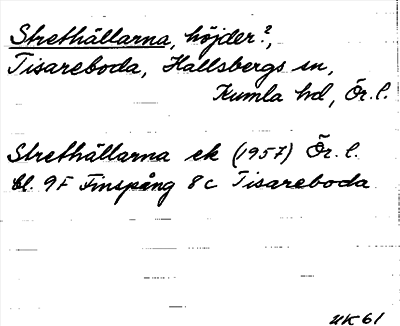 Strethällarna, höjder?,
Tisareboda, Hallsbergs sn,
Kumla hd, Ör. l.
Strethällarna ek (1957) Ör. l.
bl. 9F Finspång 8c Tisareboda
UK 61